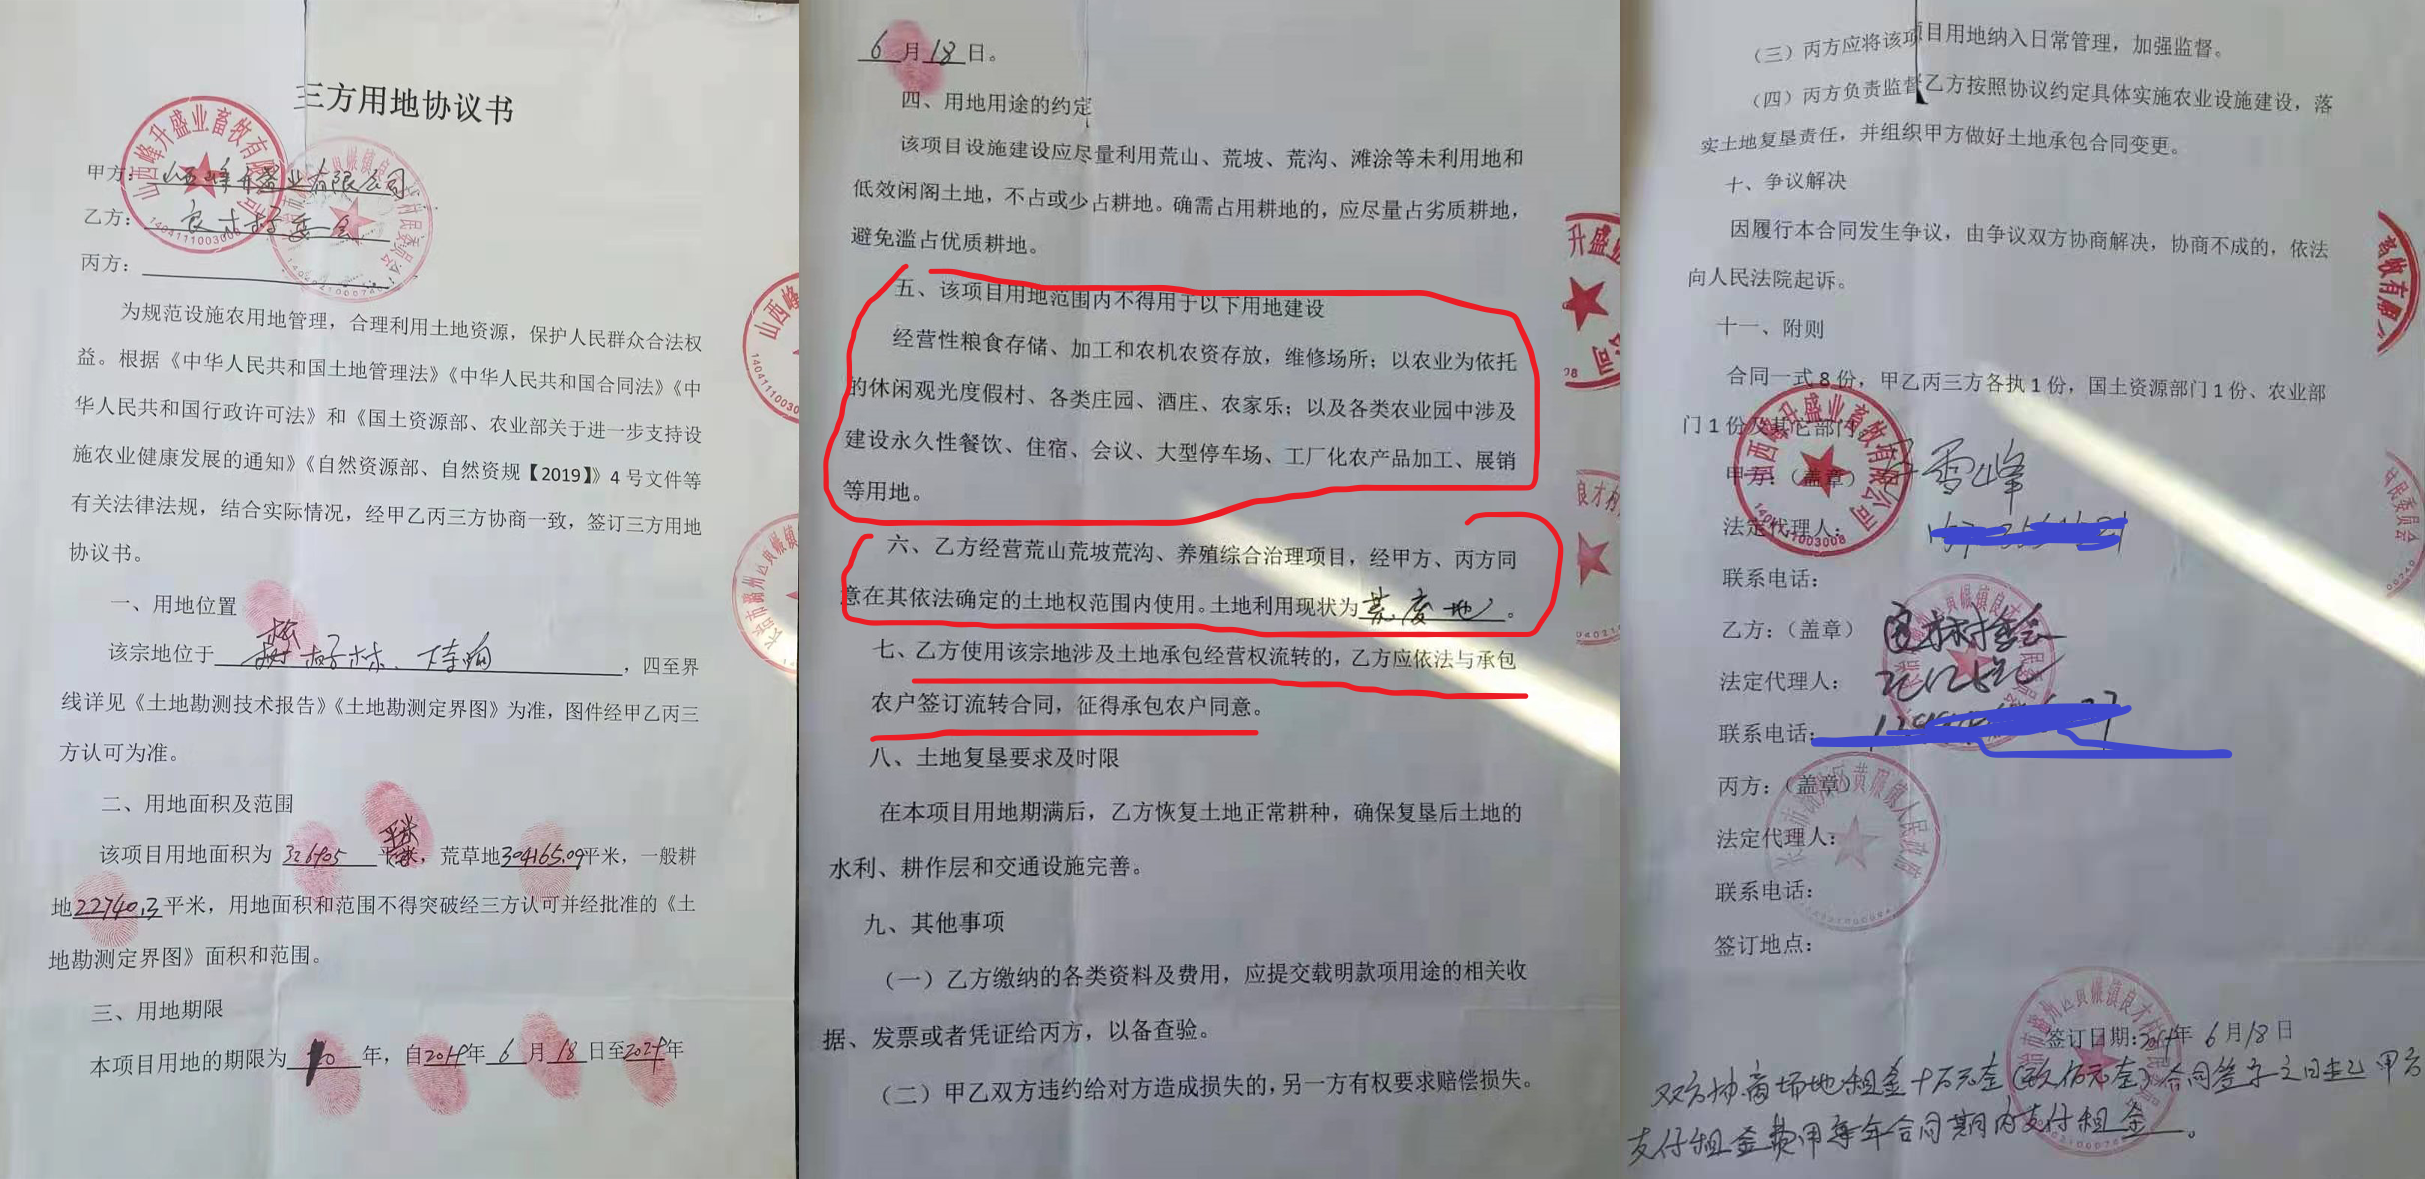 三方用地协议书
甲方：山西峰升盛业有限公司
乙方：良才村委会
丙方：
为规范设施农用地管理，合理利用土地资源，保护人民群众合法权
益。根据《中华人民共和国土地管理法》《中华人民共和国合同法》《中
华人民共和国行政许可法》和《国土资源部、农业部关于进一步支持设
施农业健康发展的通知》《自然资源部、自然资规【2019】》4 号文件等
有关法律法规，结合实际情况，经甲乙丙三方协商一致，签订三方用地
协议书。
一、用地位置
该宗地位于，四至界
线详见《土地勘测技术报告》《土地勘测定界图》为准，图件经甲乙丙三
方认可为准。
二、用地面积及范围
该项目用地面积为 326905 平米，荒草地304165.09平米，一般耕
地22740.3平米，用地面积和范围不得突破经三方认可并经批准的《土
地勘测定界图》面积和范围。
三、用地期限
本项目用地的期限为 10 年，自2019年 6 月 18 日至2029年
6 月 18 日。
四、用地用途的约定
该项目设施建设应尽量利用荒山、荒坡、荒沟、滩涂等未利用地和
低效闲阁土地，不占或少占耕地。确需占用耕地的，应尽量占劣质耕地，
避免滥占优质耕地。
五、该项目用地范围内不得用于以下用地建设
经营性粮食存储、加工和农机农资存放，维修场所；以农业为依托
的休闲观光度假村、各类庄园、酒庄、农家乐；以及各类农业园中涉及
建设永久性餐饮、住宿、会议、大型停车场、工厂化农产品加工、展销
等用地。
六、乙方经营荒山荒坡荒沟、养殖综合治理项目，经甲方、丙方同
意在其依法确定的土地权范围内使用。土地利用现状为 荒废地 。
七、乙方使用该宗地涉及土地承包经营权流转的，乙方应依法与承包
农户签订流转合同，征得承包农户同意。
八、土地复垦要求及时限
在本项目用地期满后，乙方恢复土地正常耕种，确保复垦后土地的
水利、耕作层和交通设施完善。
九、其他事项
（一）乙方缴纳的各类资料及费用，应提交载明款项用途的相关收
据、发票或者凭证给丙方，以备查验。
（二）甲乙双方违约给对方造成损失的，另一方有权要求赔偿损失。
（三）丙方应将该项目用地纳入日常管理，加强监督。
（四）丙方负责监督乙方按照协议约定具体实施农业设施建设，落
实土地复垦责任，并组织甲方做好土地承包合同变更。
十、争议解决
因履行本合同发生争议，由争议双方协商解决，协商不成的，依法
向人民法院起诉。
十一、附则
合同一式 8 份，甲乙丙三方各执 1 份，国土资源部门 1 份、农业部
门 1 份及其它部门
甲方：（盖章）雪峰
法定代理人：
联系电话：
乙方：（盖章）
法定代理人：
联系电话：
丙方：（盖章）
法定代理人：
联系电话：
签订地点：
签订日期：2019年 6 月 18 日
双方协商场地租金十万元在合同签字之日起乙甲方
支付租金费用每年合同期内支付租金。
山西峰升盛业畜牧有限公司
1404111003008